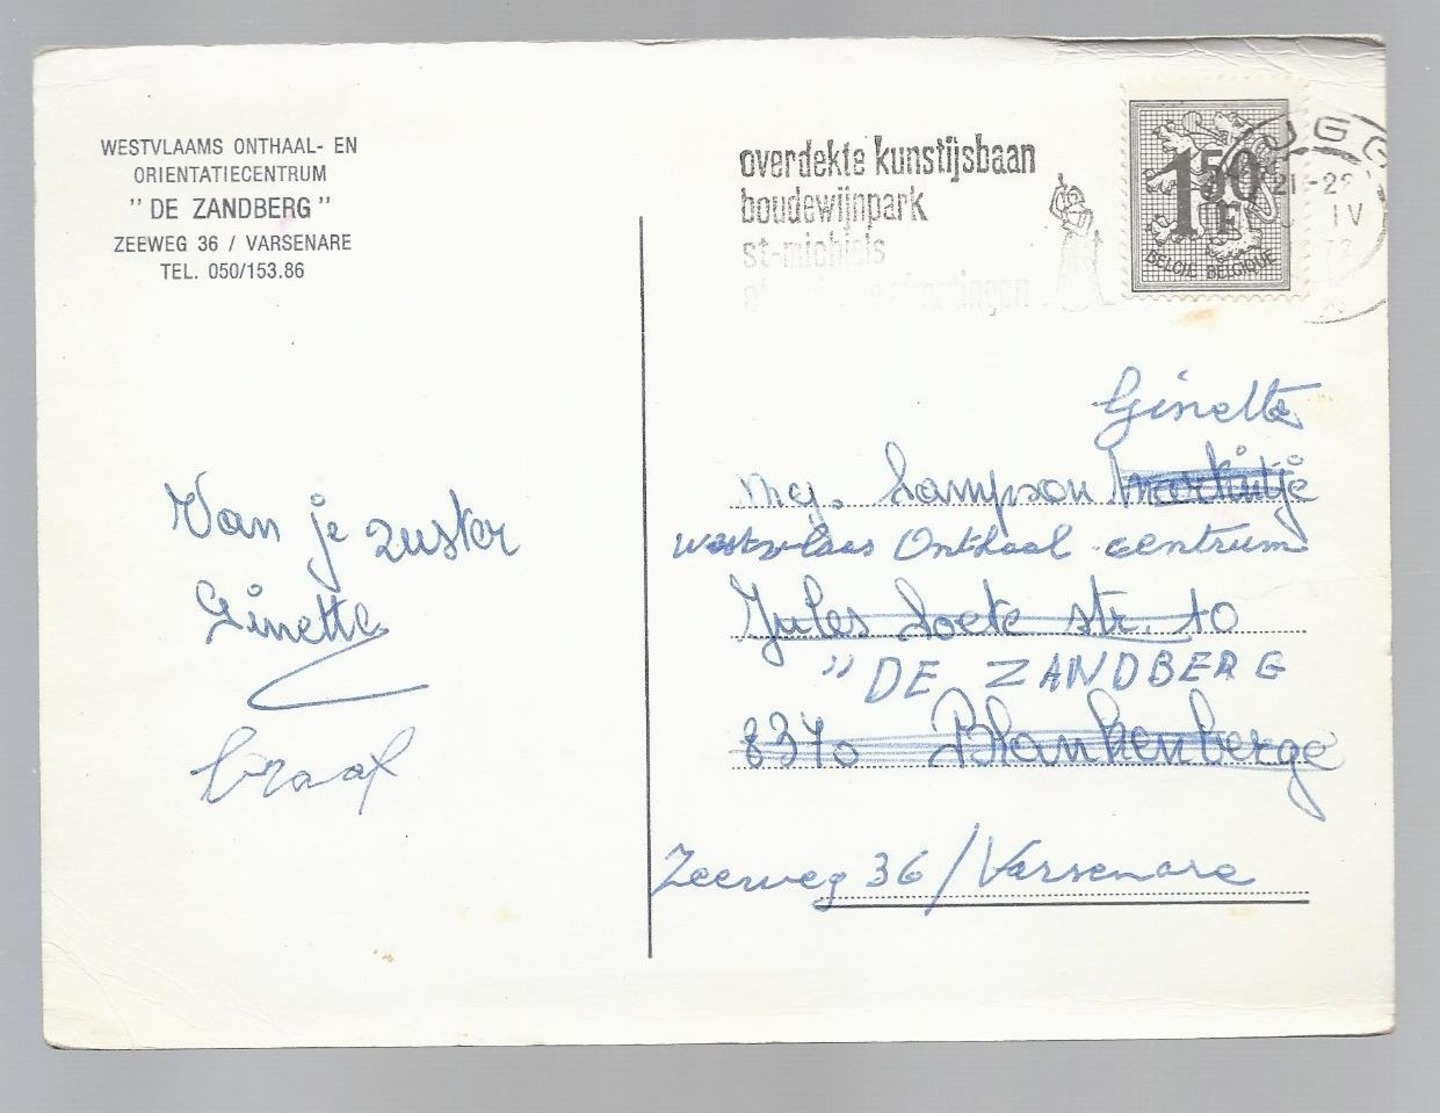 WESTVLAAMS ONTHAAL- EN
ORIENTATIECENTRUM
" DE ZANDBERG "
ZEEWEG 36 / VARSENARE
TEL. 050/153.86
overdekte kunstijsbaan
boudewijnpark
st-michiels
1F50
BELGIË BELGIQUE
UGG
21-22
IV
72
Van je zuster
Ginette
braaf
Ginette
mej. Sampson Martintje
westvlaas Onthaal centrum
Jules Soete str. 10
"DE ZANDBERG
8370 Blankenberge
Zeeweg 36/Varsenare